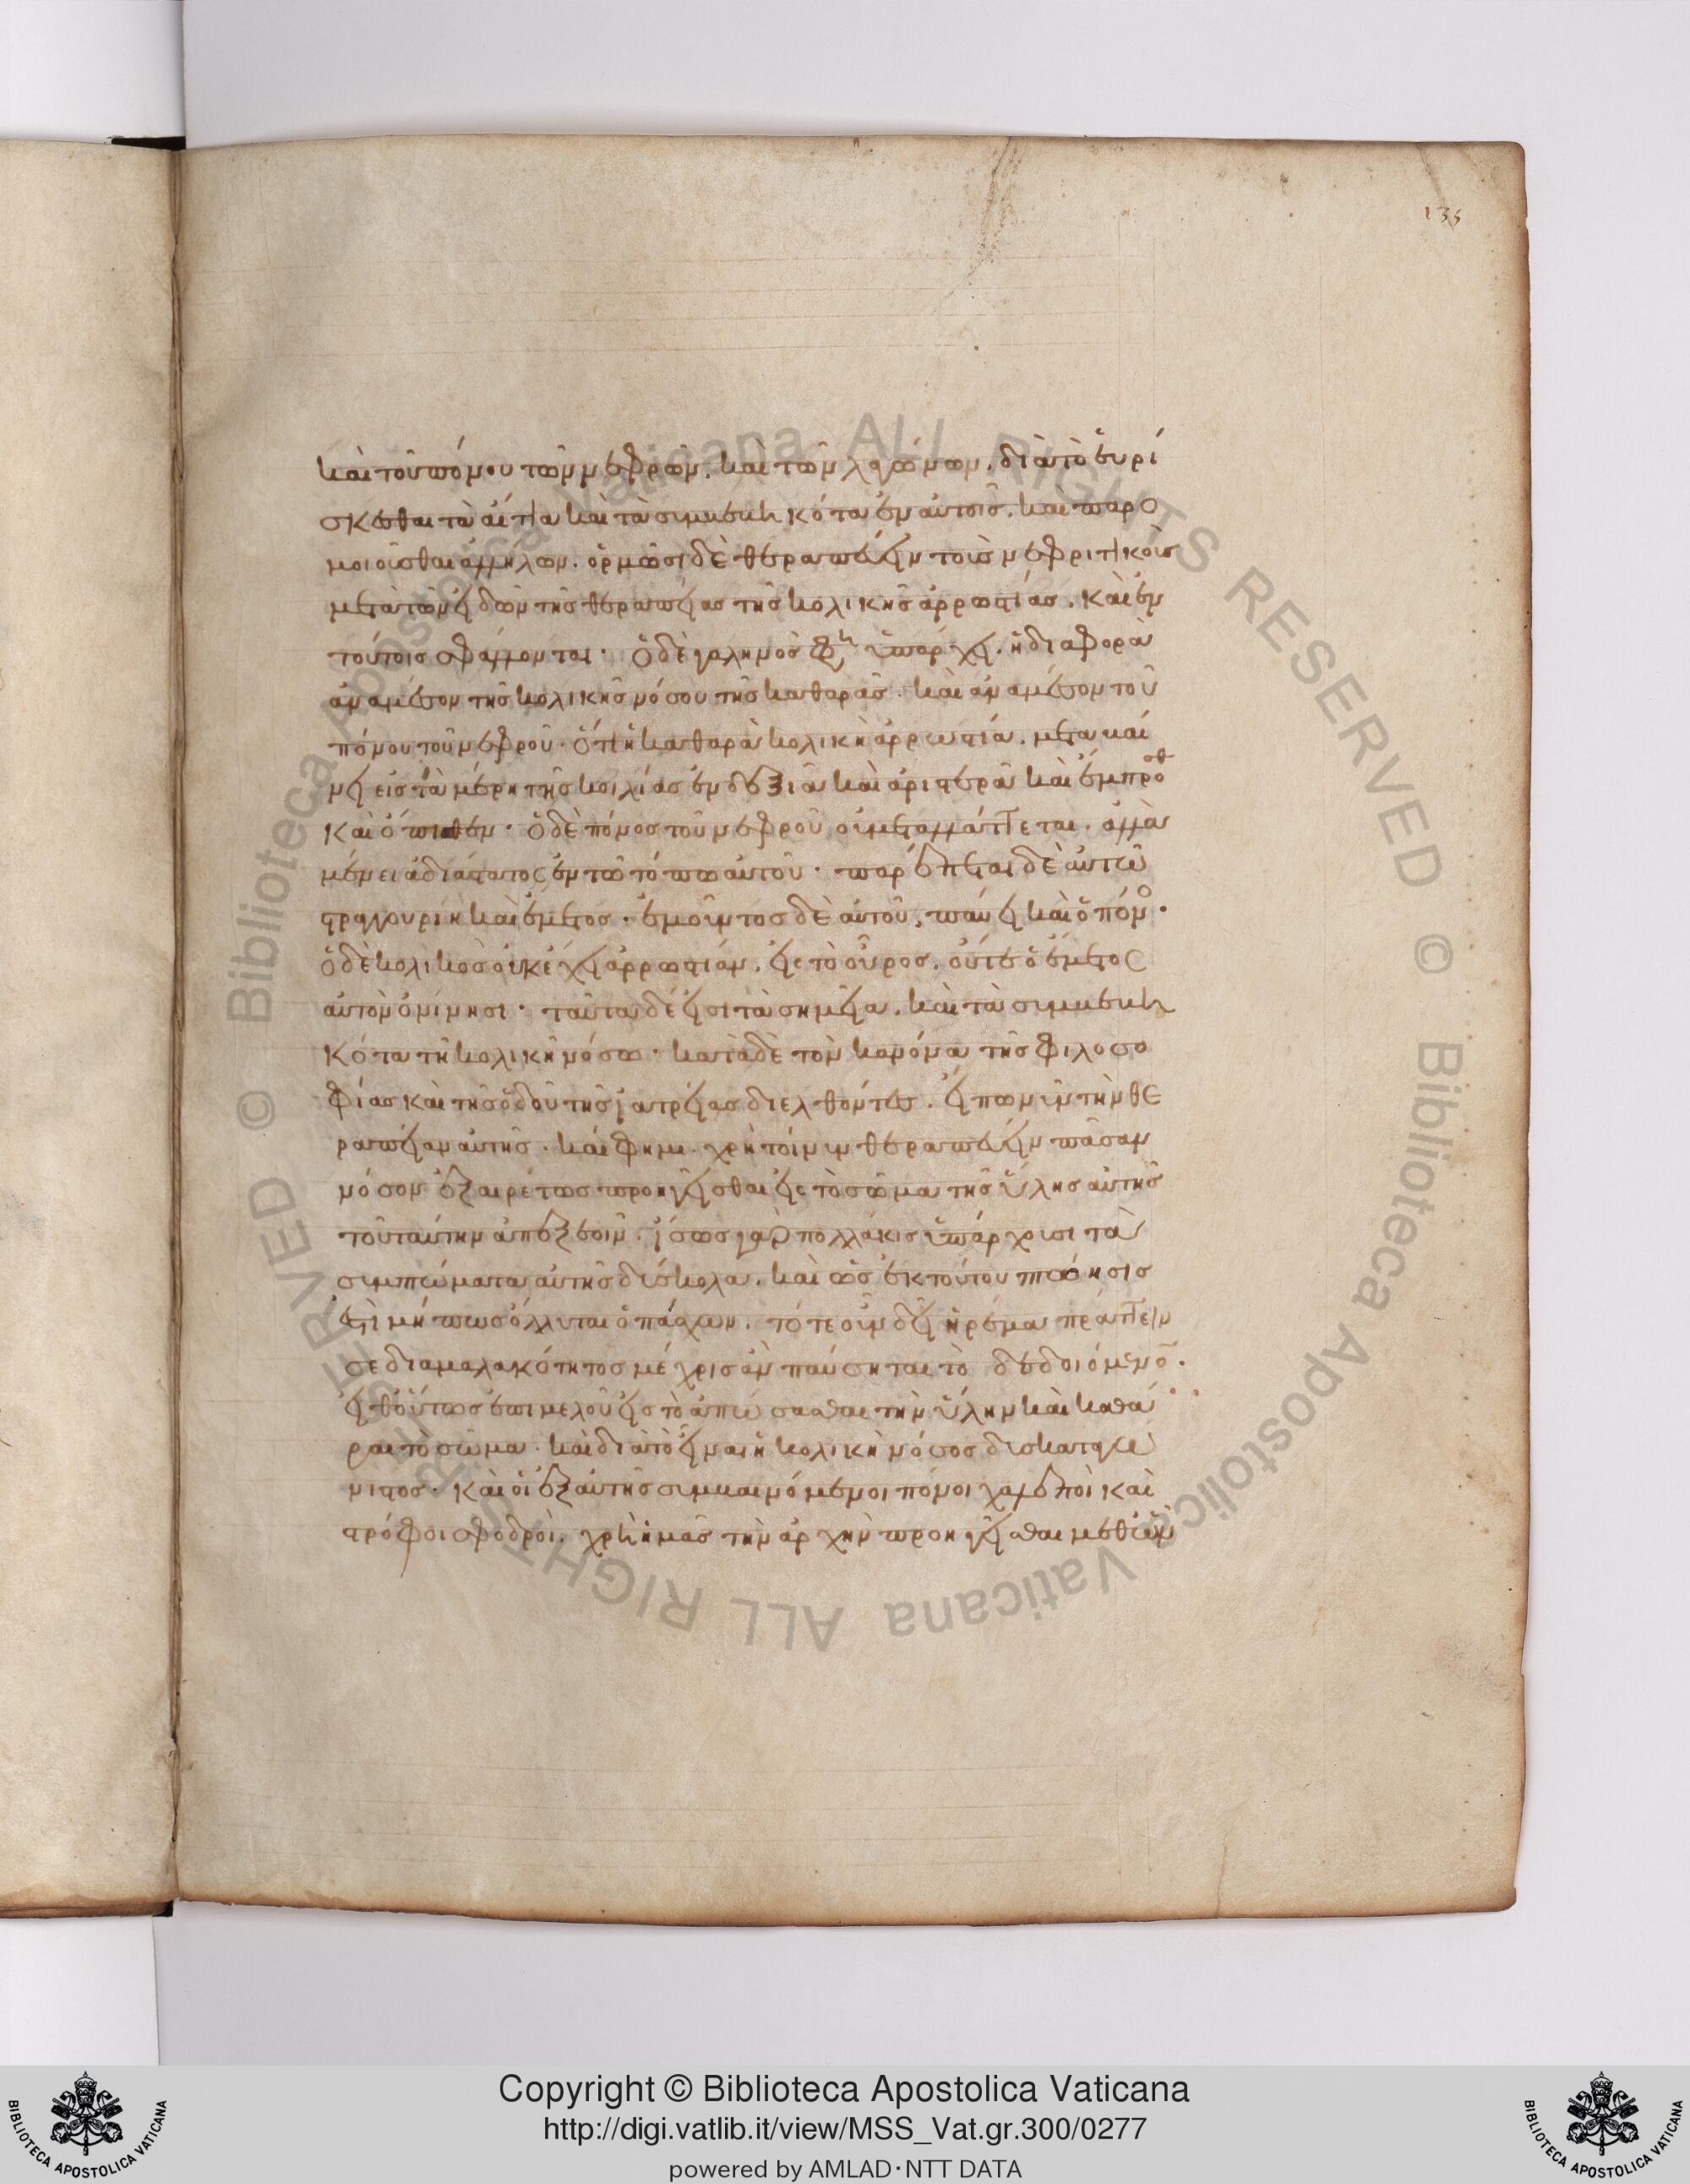 135
καὶ τοῦ πόνου τῶν νεφρῶν, καὶ τῶν λαγόνων, διὰ τὸ εὑρί
σκεσθαι τὰ αἴτια καὶ τὰ συμβεβηκότα ἐν αὐτοῖς, καὶ παρο
μοιοῦσθαι ἀλλήλων. ὁρμῶσι δὲ θεραπεύειν τοῖς νεφριτικοῖς
μετὰ τῶν εἰδῶν τῆς θεραπείας τῆς κολικῆς ἀρρωστίας. καὶ ἐν
τούτοις σφάλλονται. ὁ δὲ γαληνὸς φη ὑπάρχει ἡ διαφορὰ
ἀναμέσον τῆς κολικῆς νόσου τῆς καθαρᾶς. καὶ ἀναμέσον τοῦ
πόνου τοῦ νεφροῦ. ὅτι ἡ καθαρὰ κολικὴ ἀρρωστία, μεταβαί
νει εἰς τὰ μέρη τῆς κοιλίας ἐν δεξιᾶ καὶ ἀριστερᾶ καὶ ἔμπροσθ
καὶ ὄπισθεν. ὁ δὲ πόνος τοῦ νεφροῦ οὐ μεταλλάττεται. ἀλλὰ
μένει ἀδιάστατος ἐν τῶ τόπω αὐτοῦ. παρέπεται δὲ αὐτῶ
στραγγουρίη καὶ ἔμετος. ἐμοῦντος δὲ αὐτοῦ, παύει καὶ ὁ πόνο.
ὁ δὲ κολικὸς οὐκ ἔχει ἀρρωστίαν, εἰς τὸ οὖρος, οὔτε ὁ ἔμετος
αὐτὸν ὀνίνησι. ταῦτα δέ εἰσι τὰ σημεῖα, καὶ τὰ συμβεβη
κότα τῆ κολικῆ νόσω. κατὰ δὲ τὸν κανόνα τῆς φιλοσο
φίας καὶ τῆς ὁδοῦ τῆς ἰατρείας διελθόντες. εἴπωμεν τὴν θε
ραπείαν αὐτῆς. καί φημι. χρὴ τοίνυν θεραπεύειν πᾶσαν
νόσον ἐξαιρέτως προηγεῖσθαι εἰς τὸ σῶμα τῆς ὕλης αὐτῆς
τοῦ ταύτην ἀποξεοῦν. ἴσως γὰρ πολλάκις ὑπάρχουσι τὰ
συμπτώματα αὐτῆς δύσκολα. καὶ ὡς ἐκ τούτου πτόησις
ἐστὶ μή πως ὄλλυται ὁ πάσχων. τότε οὖν δεῖ ἠρέμα πράττειν
σε διαμαλακότητος μέχρις ἂν παύσηται τὸ δεδοιόμενον.
εἶθ' οὕτως ἐπιμελοῦ εἰς τὸ ἀπώσασθαι τὴν ὕλην καὶ καθά
ραι τὸ σῶμα. καὶ διὰ τὸ εἶναι ἡ κολικὴ νόσος δυσκαταγώ
νιστος. καὶ οἱ ἐξ αὐτῆς συμβαινόμενοι πόνοι χαλεποὶ καὶ
στρόφοι σφοδροὶ, χρὴ ἡμᾶς τὴν ἀρχὴν προηγεῖσθαι μεθ' ὧν
Copyright © Biblioteca Apostolica Vaticana
http://digi.vatlib.it/view/MSS_Vat.gr.300/0277
powered by AMLAD·NTT DATA
BIBLIOTECA APOSTOLICA VATICANA
BIBLIOTECA APOSTOLICA VATICANA
© Biblioteca Apostolica Vaticana ALL RIGHTS RESERVED
© Biblioteca Apostolica Vaticana ALL RIGHTS RESERVED